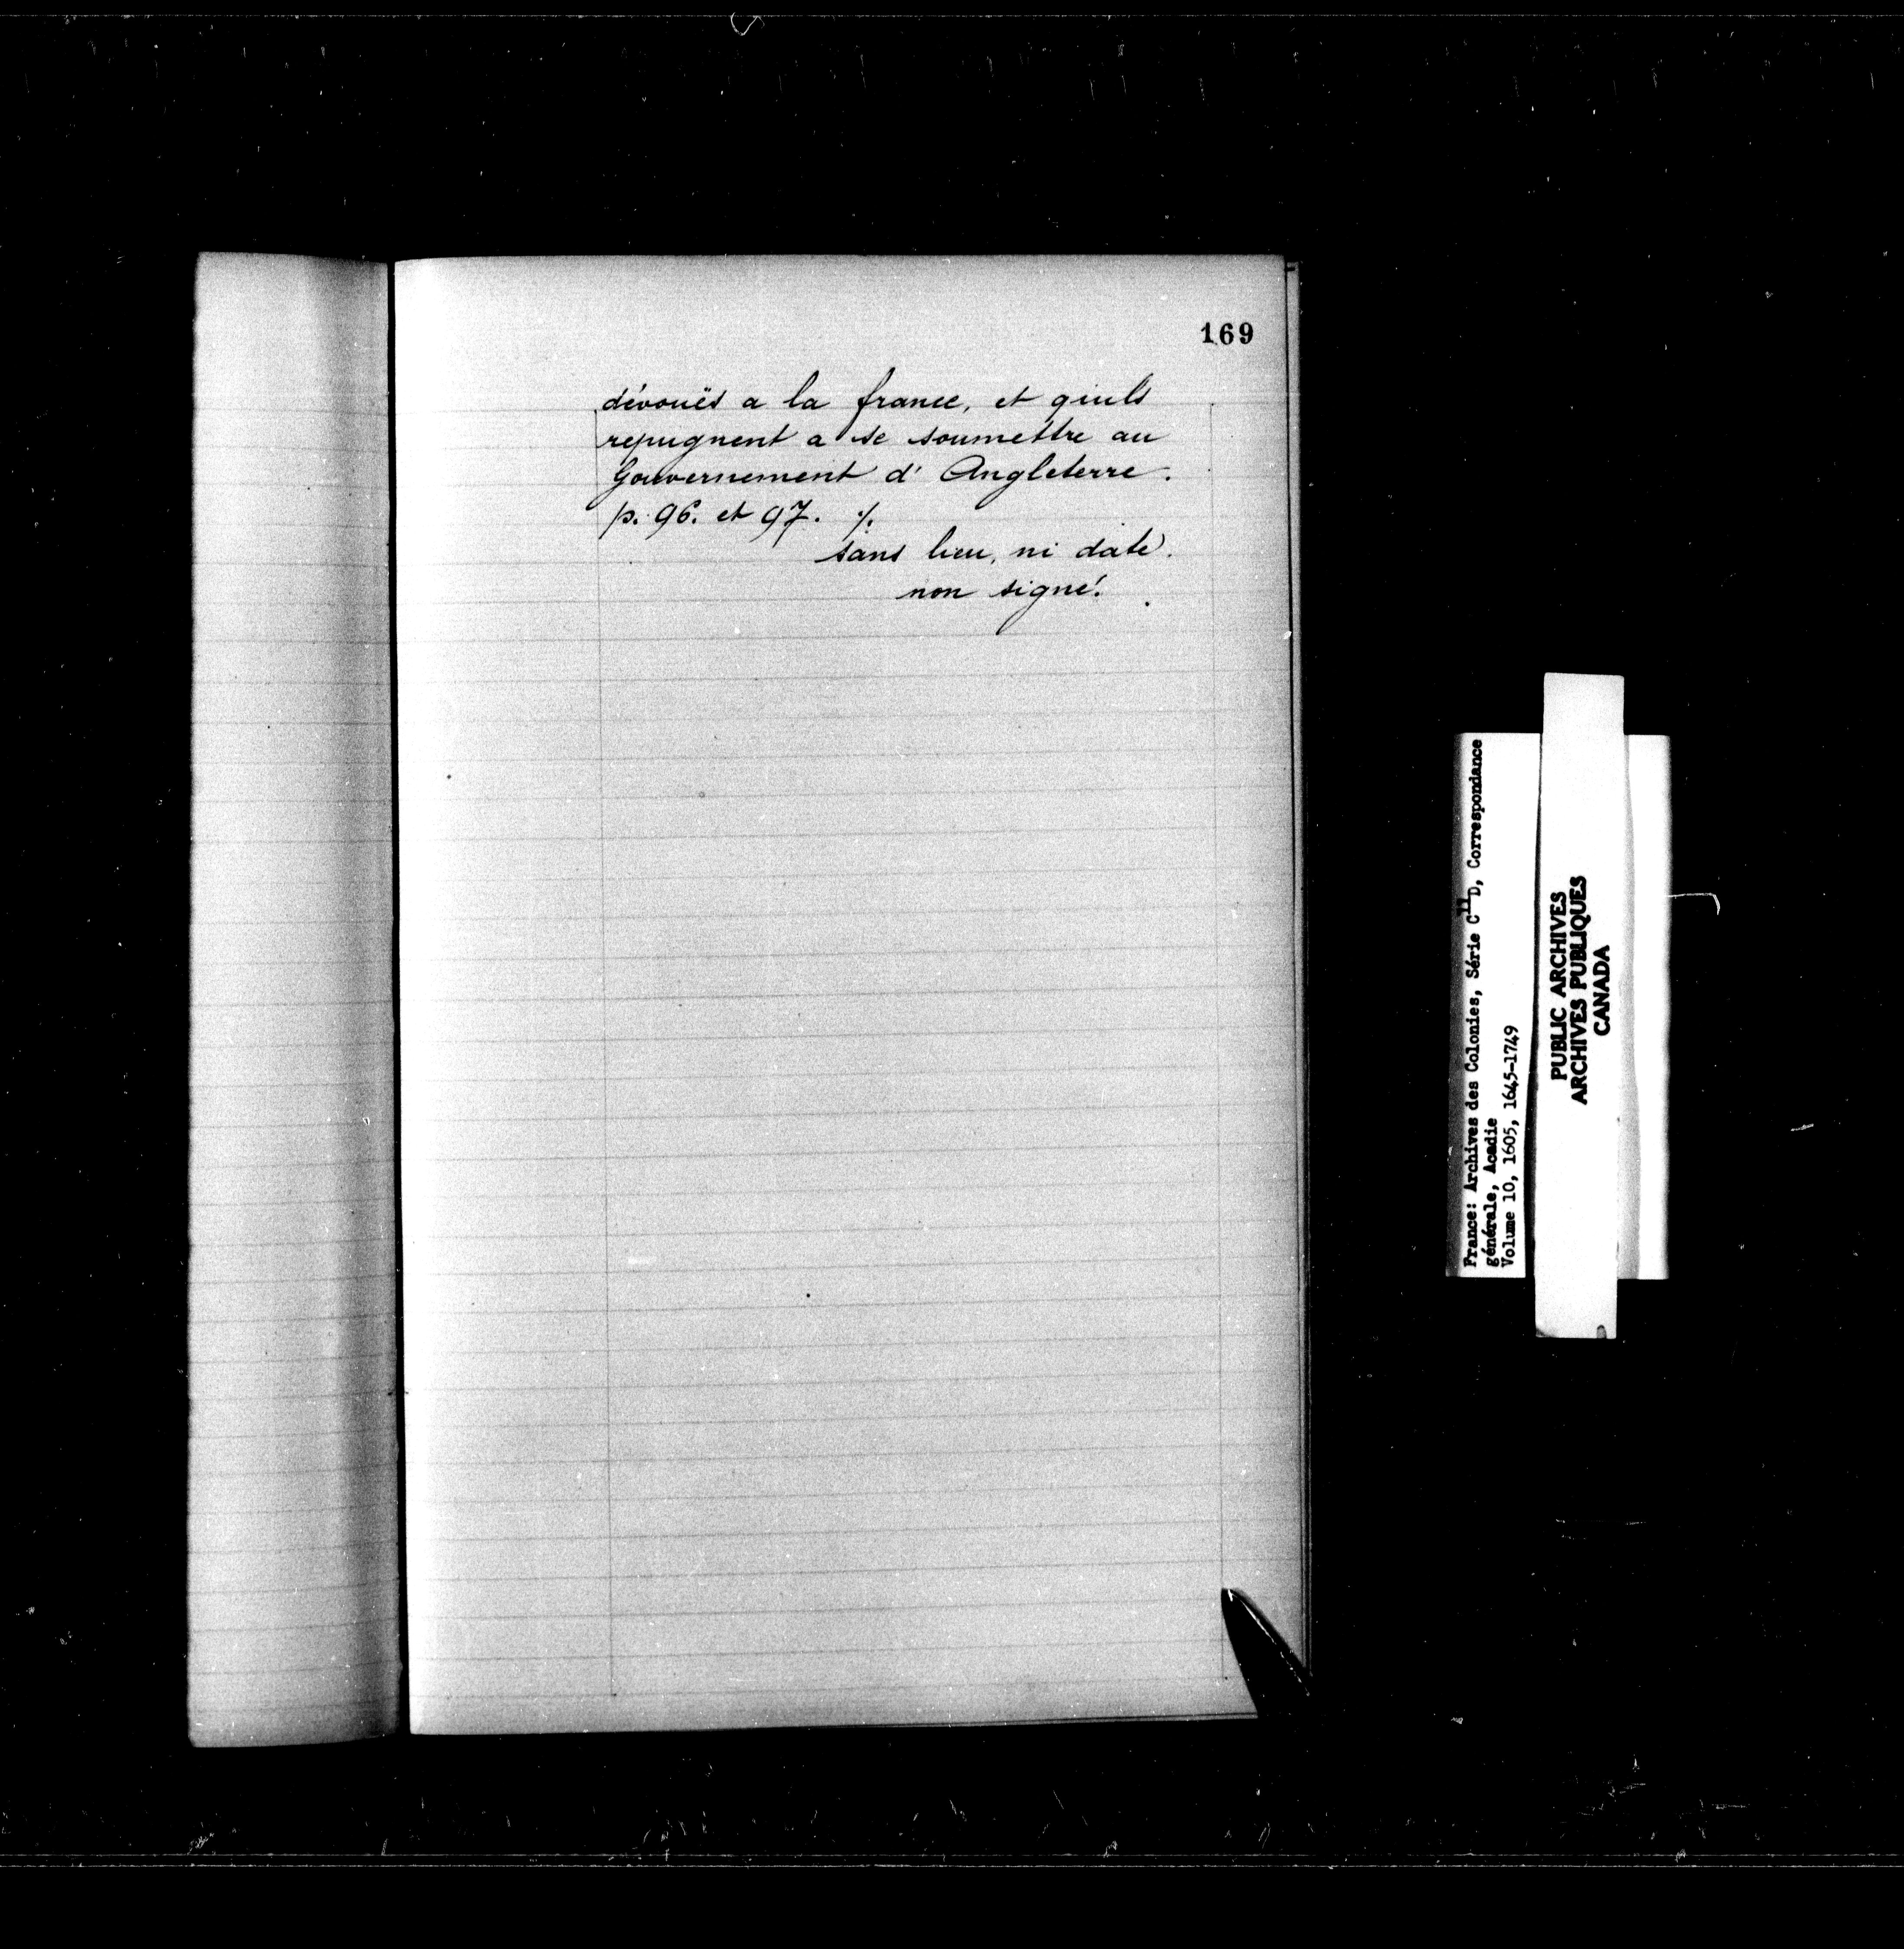 169
dévouës a la france, et qu'ils
repugnent a se soumettre au
Gouvernement d' Angleterre.
p. 96. et 97. ./.
sans lieu, ni date.
non signé.
France: Archives des Colonies, Série C11D, Correspondance
générale, Acadie
Volume 10, 1605, 1645-1749
PUBLIC ARCHIVES
ARCHIVES PUBLIQUES
CANADA